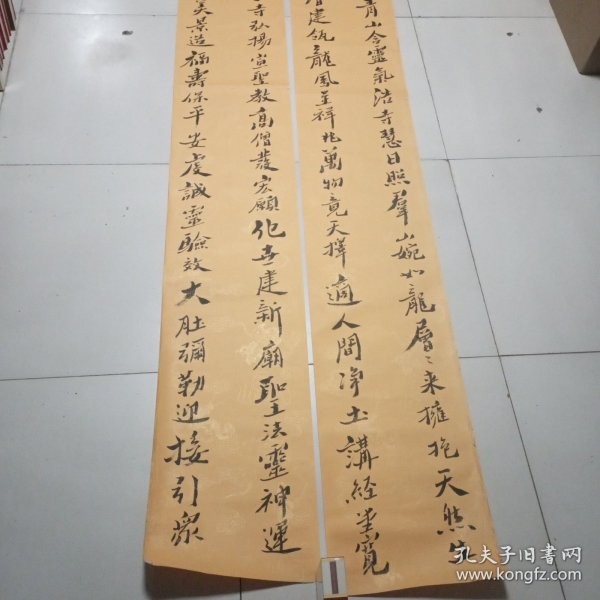 青山含靈氣浩寺慧日照羣山婉如龍層々來擁抱天然生
建瓴龍鳳呈祥兆萬物竟天擇適人間淨土講經堂寬
寺弘揚宣聖教高僧發宏願化世建新廟聖王法靈神運
美景造福壽保平安虔誠靈驗效大肚彌勒迎接引眾
孔夫子旧书网
www.kongfz.com